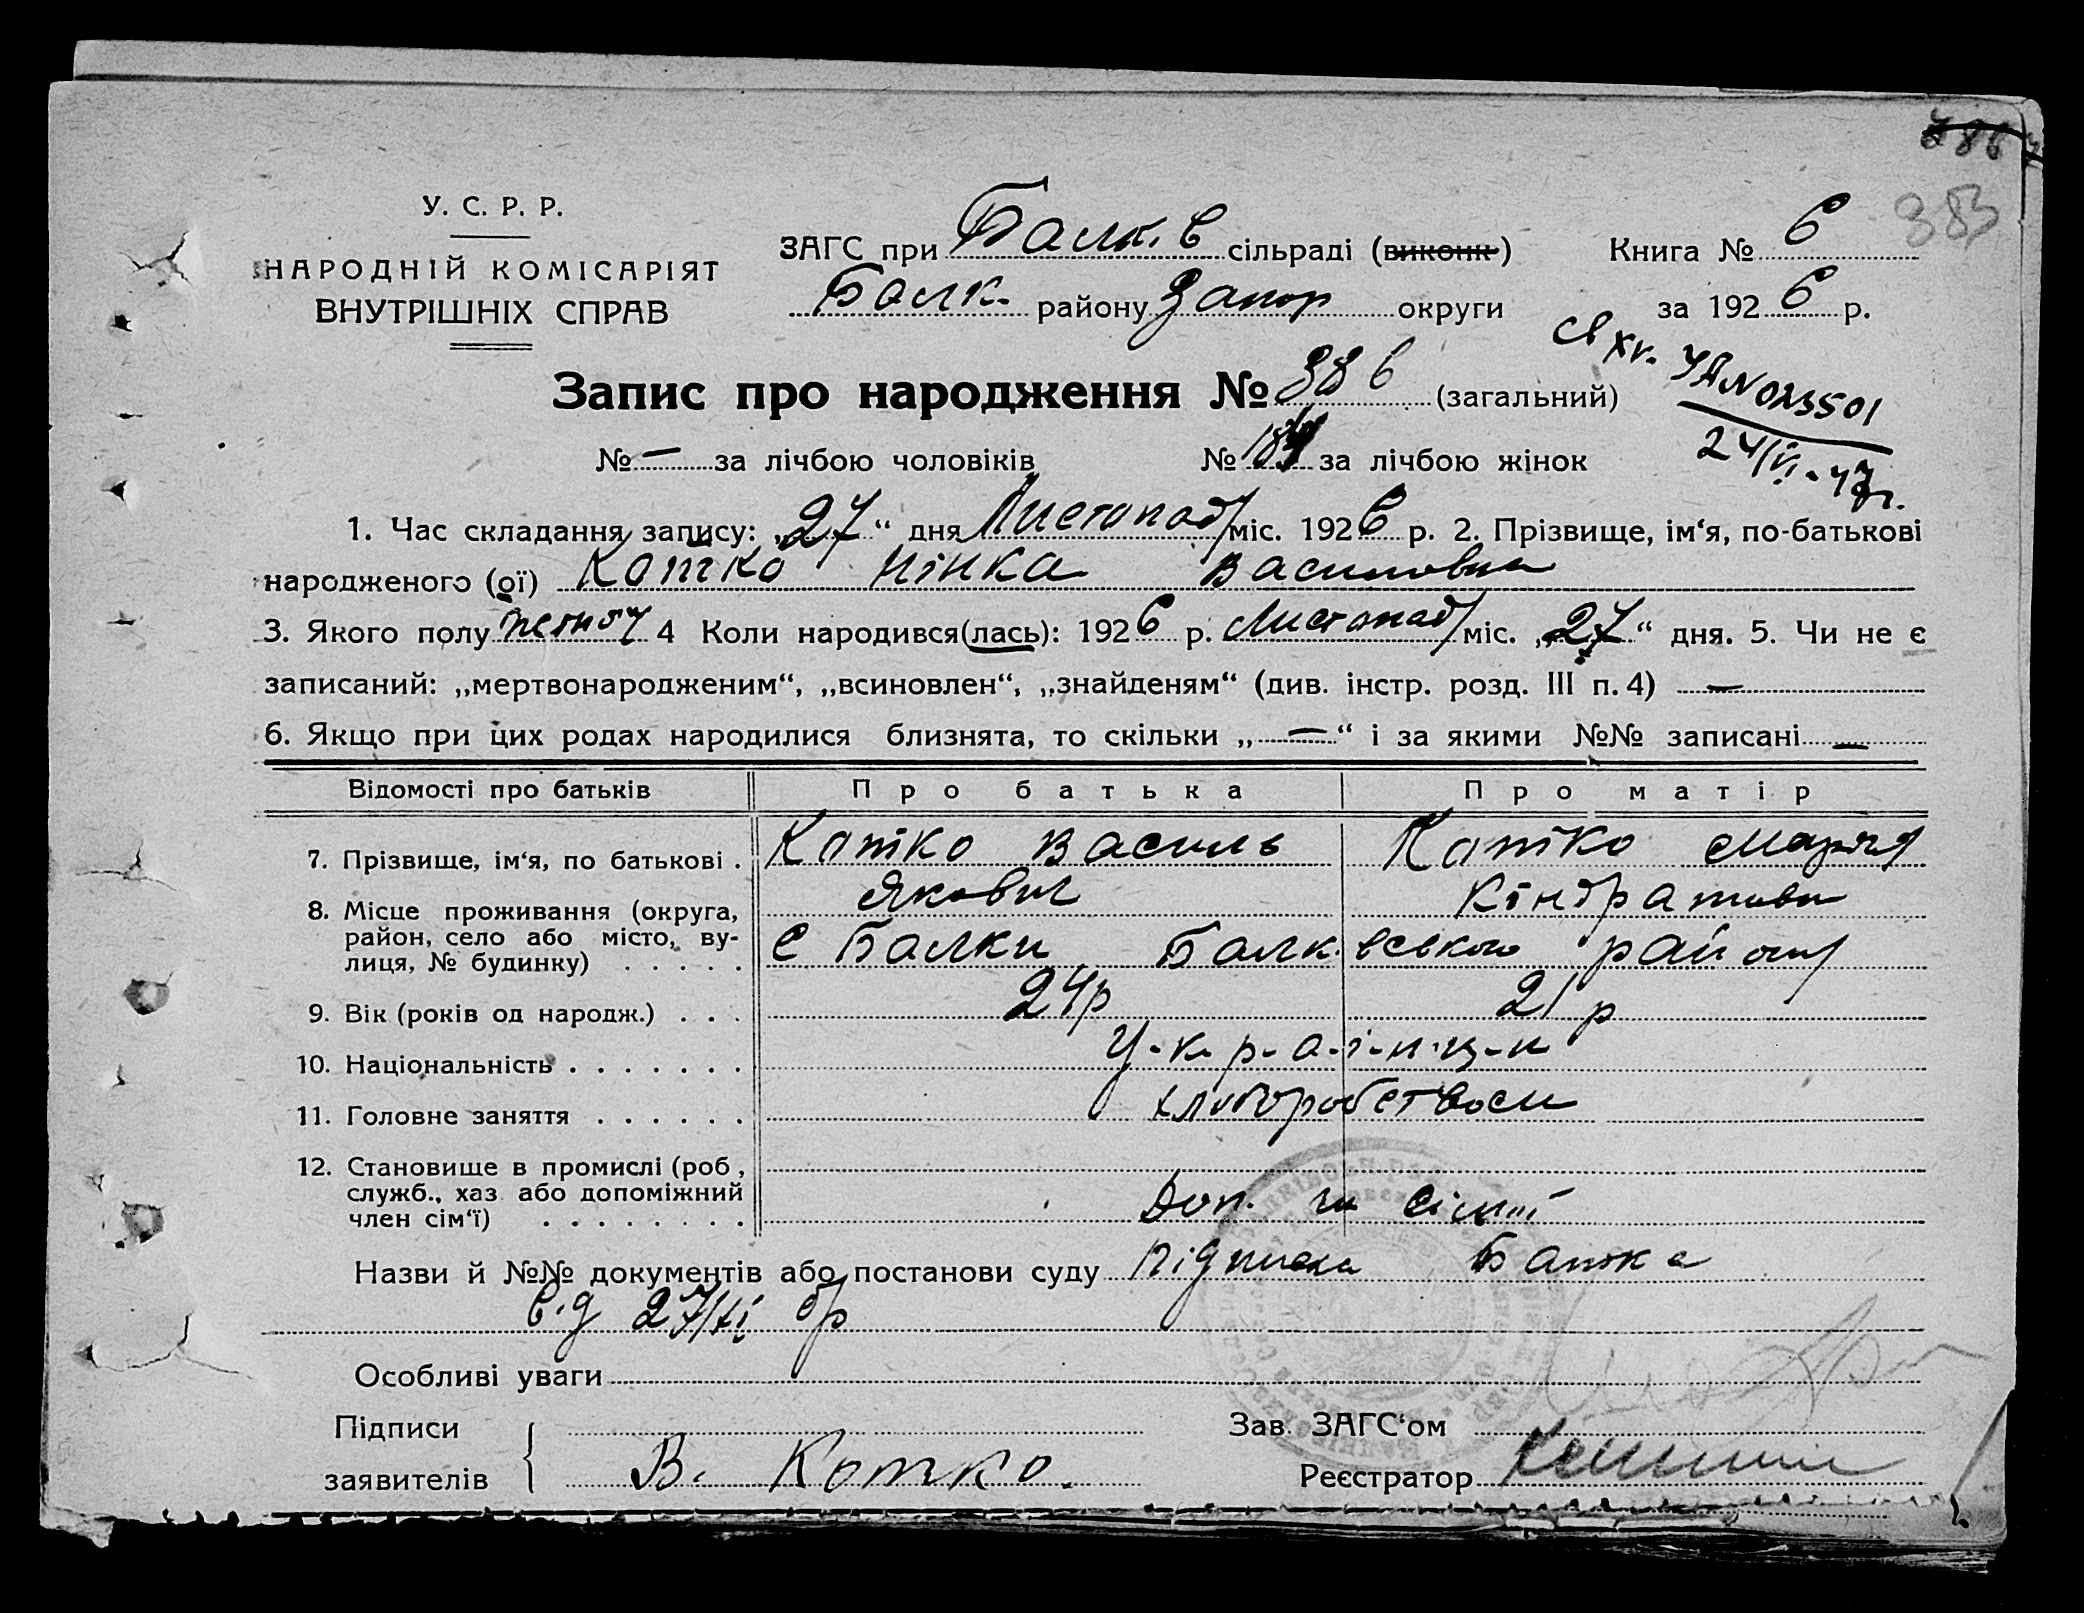 383
У. С. Р. Р.
НАРОДНІЙ КОМІСАРІЯТ
ВНУТРІШНІХ СПРАВ
ЗАГС при Балків сільраді (виконк) Книга № 6
Балк. району Запор округи за 1926 р.
Запис про народження № 386 (загальний)
Св хк. УА № 023501
24/VI-47г.
№ — за лічбою чоловіків № за лічбою жінок
1. Час складання запису: „27“ дня Листопад міс. 1926 р. 2. Прізвище, ім‘я, по-батькові
народженого (ої) Котко Нінка Василовна
3. Якого полу жіночу 4 Коли народився(лась): 1926 р. Листопад міс. „27“ дня. 5. Чи не є
записаний: „мертвонародженим“, „всиновлен“, „знайденям“ (див. інстр. розд. III п. 4) —
6. Якщо при цих родах народилися близнята, то скільки „—“ і за якими №№ записані —
Відомості про батьків Про батька Про матір
7. Прізвище, ім‘я, по батькові . Котко Василь Котко Мария
Якович Кіндратовн
8. Місце проживання (округа,
район, село або місто, ву-
лиця, № будинку) . . . . . с Балки Балківського району
9. Вік (років од народж.) . . . 24р 21р
10. Національність . . . . . . . У-к-р-а-ї-н-ц-и
11. Головне заняття . . . . . . хліборобством
12. Становище в промислі (роб.,
служб., хаз. або допоміжний
член сім‘ї) . . . . . . . . Доп. чл сімїї
Назви й №№ документів або постанови суду підписка Батка
від 27/XI бр
Особливі уваги
Підписи
заявителів В. Котко.
Зав. ЗАГС‘ом
Реєстратор